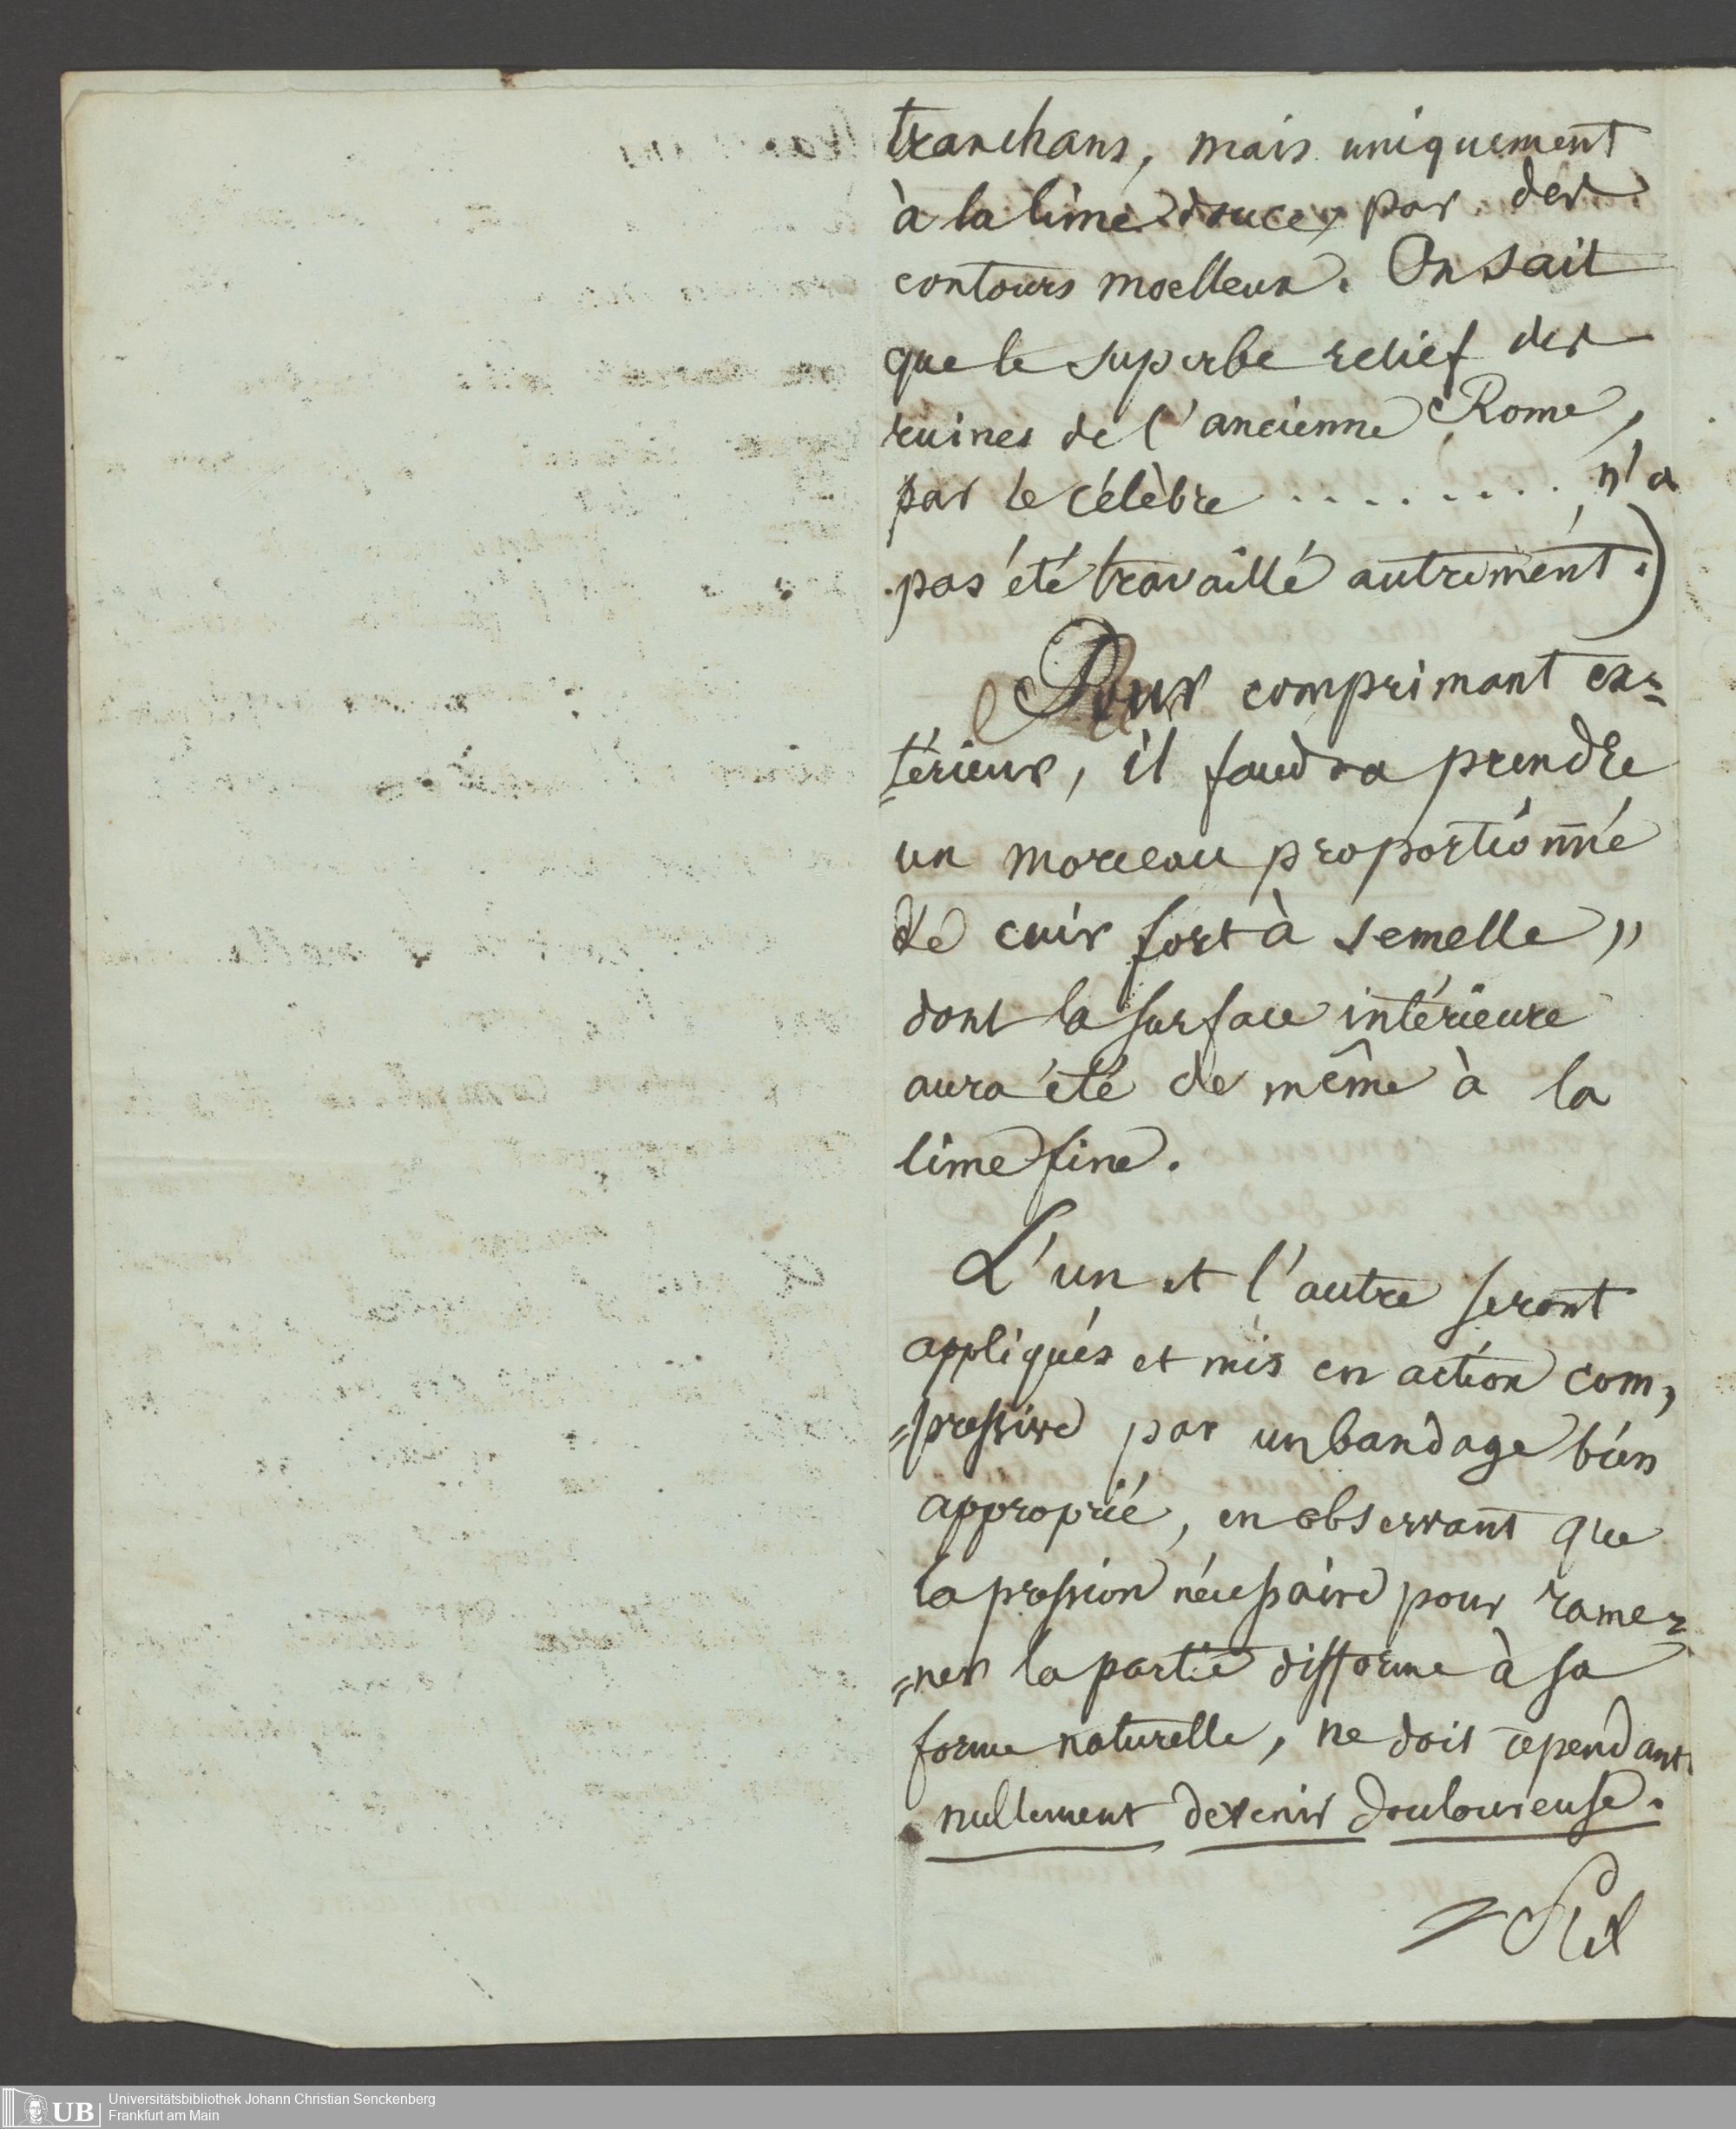 tranchans, mais uniquement
à la lime douce, par des
contours moelleux. On sait
que le superbe relief des
ruines de l'ancienne Rome,
par le célèbre ......... n'a
pas été travaillé autrement.)
Pour comprimant ex=
=térieur, il faudra prendre
un morceau proportionné
de cuir fort à semelle,,
dont la surface intérieure
aura été de même à la
lime fine.
L'un et l'autre seront
appliqués et mis en action com,
=pressive par un bandage bien
approprié, en observant que
la pression nécessaire pour rame=
=ner la partie difforme à sa
forme naturelle, ne doit cependant
nullement devenir douloureuse.
Universitätsbibliothek Johann Christian Senckenberg
Frankfurt am Main
UB